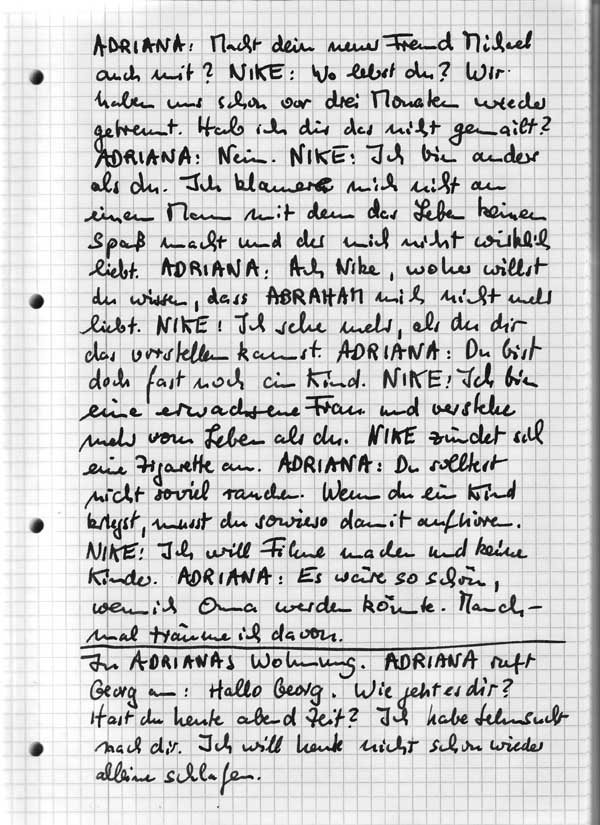 ADRIANA: Macht dein neuer Freund Michael
auch mit? NIKE: Wo lebst du? Wir
haben uns schon vor drei Monaten wieder
getrennt. Hab ich dir das nicht gemailt?
ADRIANA: Nein. NIKE: Ich bin anders
als du. Ich klammere mich nicht an
einen Mann mit dem das Leben keinen
Spaß macht und der mich nicht wirklich
liebt. ADRIANA: Ach Nike, woher willst
du wissen, dass ABRAHAM mich nicht mehr
liebt. NIKE: Ich sehe mehr, als du dir
das vorstellen kannst. ADRIANA: Du bist
doch fast noch ein Kind. NIKE: Ich bin
eine erwachsene Frau und verstehe
mehr vom Leben als du. NIKE zündet sich
eine Zigarette an. ADRIANA: Du solltest
nicht soviel rauchen. Wenn du ein Kind
kriegst, musst du sowieso damit aufhören.
NIKE: Ich will Filme machen und keine
Kinder. ADRIANA: Es wäre so schön,
wenn ich Oma werden könnte. Manch-
mal träume ich davon.
In ADRIANAS Wohnung. ADRIANA ruft
Georg an: Hallo Georg. Wie geht es dir?
Hast du heute abend Zeit? Ich habe Sehnsucht
nach dir. Ich will heute nicht schon wieder
alleine schlafen.